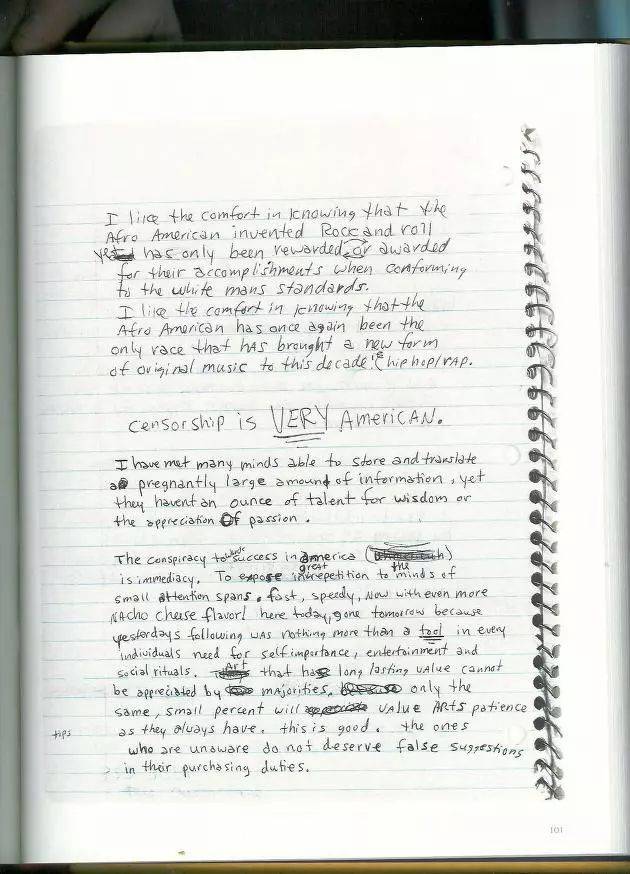 I like the comfort in knowing that the
Afro American invented Rock and roll
yet has only been rewarded or awarded
for their accomplishments when conforming
to the white mans standards.
I like the comfort in knowing that the
Afro American has once again been the
only race that has brought a new form
of original music to this decade! (hip hop/rap.
censorship is VERY American.
I have met many minds able to store and translate
a pregnantly large amount of information, yet
they havent an ounce of talent for wisdom or
the appreciation of passion.
The conspiracy towards success in america
is immediacy. To expose in great repetition to the minds of
small attention spans. fast, speedy, Now with even more
NAcho cheese flavor! here today, gone tomorrow because
yesterdays following was nothing more than a tool in every
individuals need for self importance, entertainment and
social rituals. Art that has long lasting value cannot
be appreciated by majorities. only the
same, small percent will value ARts patience
as they always have. this is good. the ones
tips
who are unaware do not deserve false suggestions
in their purchasing duties.
101